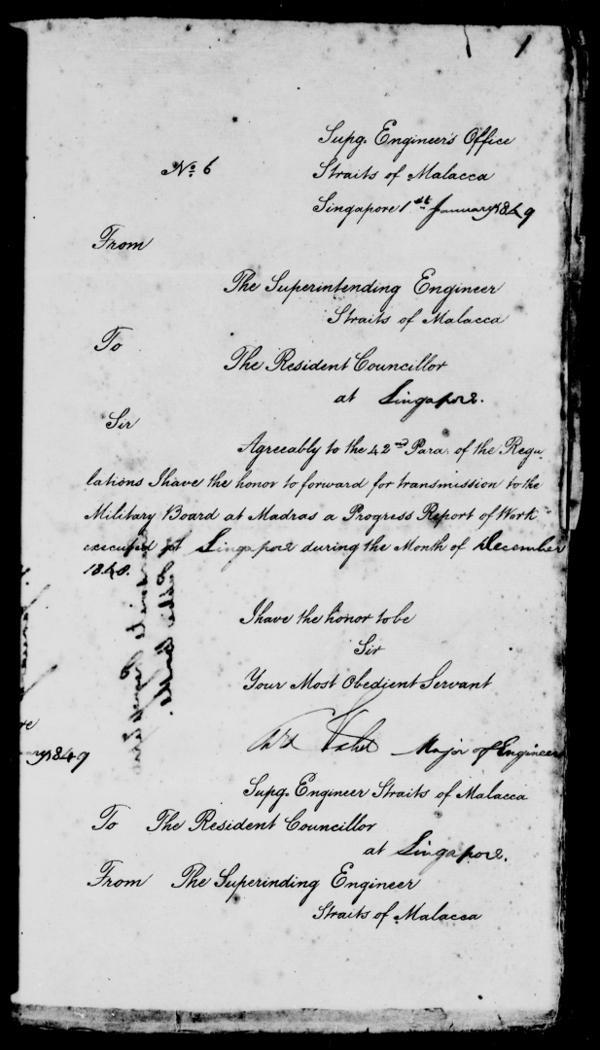 1
Supg. Engineer's Office
No. 6
Straits of Malacca
Singapore 1st January 1849
From
The Superintending Engineer
Straits of Malacca
To
The Resident Councillor
at Singapore.
Sir
Agreeably to the 42nd Para. of the Regu
lations I have the honor to forward for transmission to the
Military Board at Madras a Progress Report of Work
executed at Singapore during the Month of December
1848.
I have the honor to be
Sir
Your Most Obedient Servant
Major of Engineer
Supg. Engineer Straits of Malacca
To The Resident Councillor
at Singapore.
From The Superinding Engineer
Straits of Malacca
1849